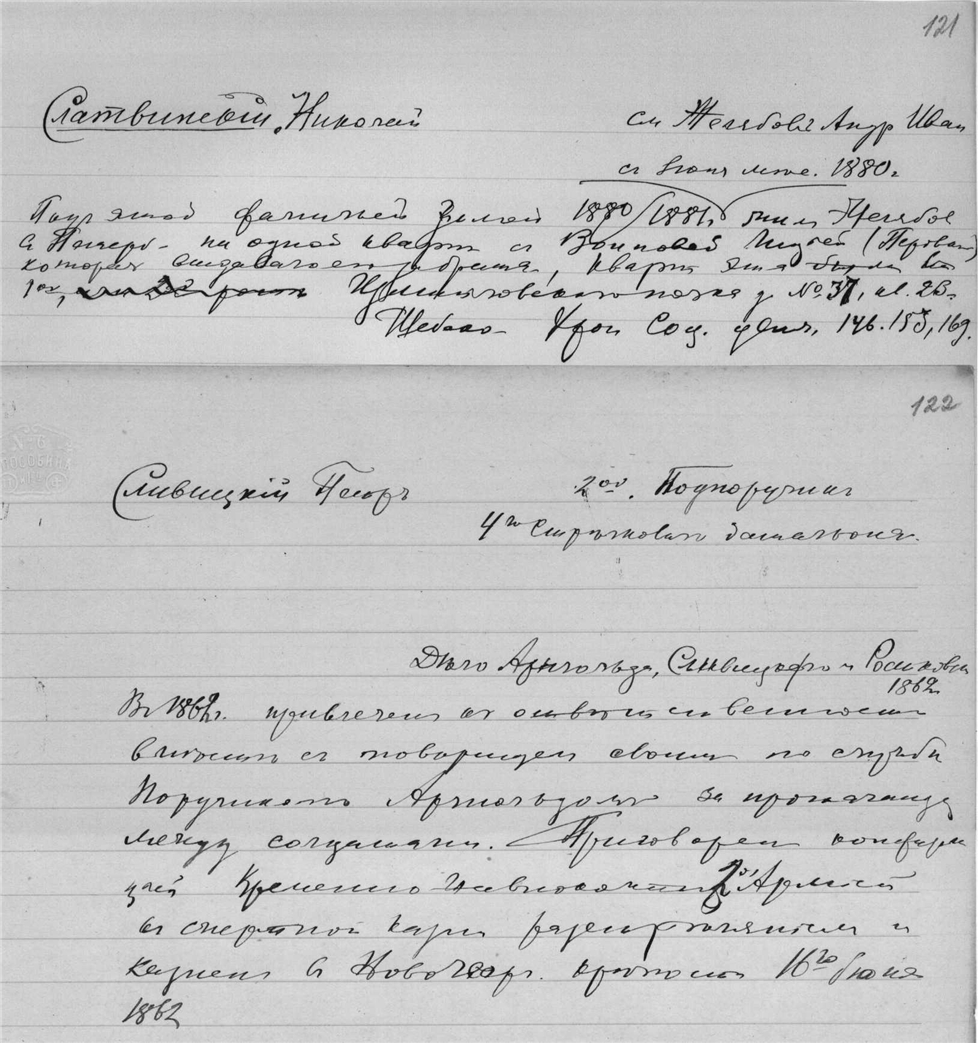 121
Слатвинскій, Николай см Желябовъ Андр Иван
съ Іюня мѣс. 1880 г
Подъ этой фамиліей зимой 1880/1881 г. жилъ Желябов
въ Петерб- на одной кварт съ Войновой Лидіей (Перовск)
которая выдавалась за сестру, кварт эта была въ
1ой, Измайловскаго полка д №37, кв. 23-
Шебеко- Хрон Соц. движ. 146. 153, 169.
122
Сливицкій Петръ 2ой. Подпоручик
4го Стрѣлковаго баталіона.
Дѣло Арнгольда, Сливицкаго и Ростковск
1862
Въ 1862г. привлечен къ отвѣтственности
вмѣстѣ съ товарищем своим по службѣ
Поручикомъ Арнгольдомъ за пропаганду
между солдатами. Приговорен конфирм
цией Временно Главнокоманд 1ой Арміей
къ смертной казни разстрѣляніем и
казнен въ Новогеор. крѣпости 16го Іюня
1862